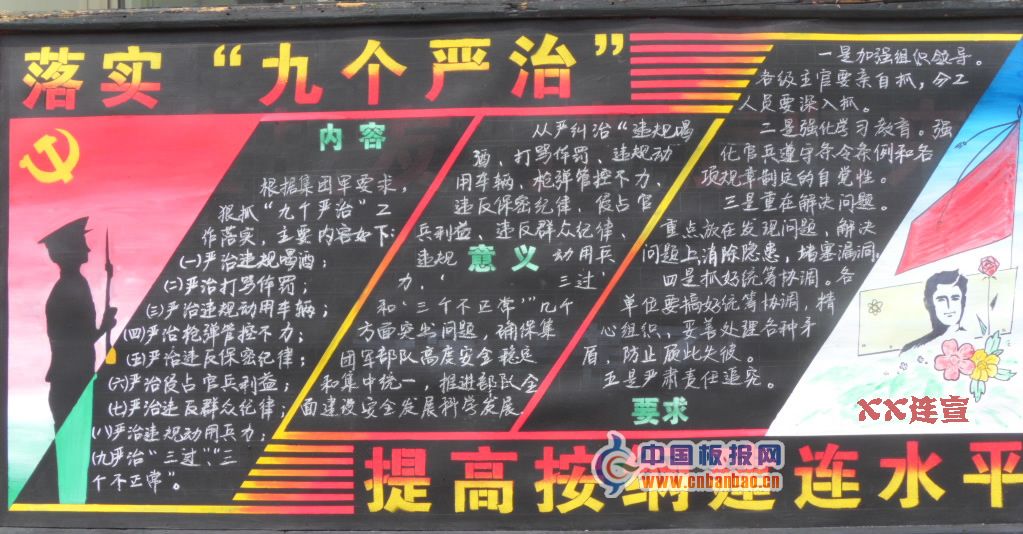 落实“九个严治”
内容
根据集团军要求，
狠抓“九个严治”工
作落实，主要内容如下：
(一)严治违规喝酒；
(二)严治打骂体罚；
(三)严治违规动用车辆；
(四)严治枪弹管控不力；
(五)严治违反保密纪律；
(六)严治侵占官兵利益；
(七)严治违反群众纪律；
(八)严治违规动用兵力；
(九严治“三过”、“三
个不正常”。
从严纠治“违规喝
酒、打骂体罚、违规动
用车辆、枪弹管控不力、
违反保密纪律、侵占官
兵利益、违反群众纪律、
违规 动用兵
力、 三过’
意义
和‘三个不正常’”几个
方面突出问题，确保集
团军部队高度安全稳定
和集中统一，推进部队全
面建设安全发展科学发展.
一是加强组织领导。
各级主官要亲自抓，分工
人员要深入抓。
二是强化学习教育。强
化官兵遵守条令条例和各
项规章制定的自觉性。
三是重在解决问题。
重点放在发现问题，解决
问题上消除隐患，堵塞漏洞.
四是抓好统筹协调。各
单位要搞好统筹协调，精
心组织、妥善处理各种矛
盾，防止顾此失彼。
五是严肃责任追究。
要求
XX连宣
提高按纲建连水平
中国板报网
www.cnbanbao.cn